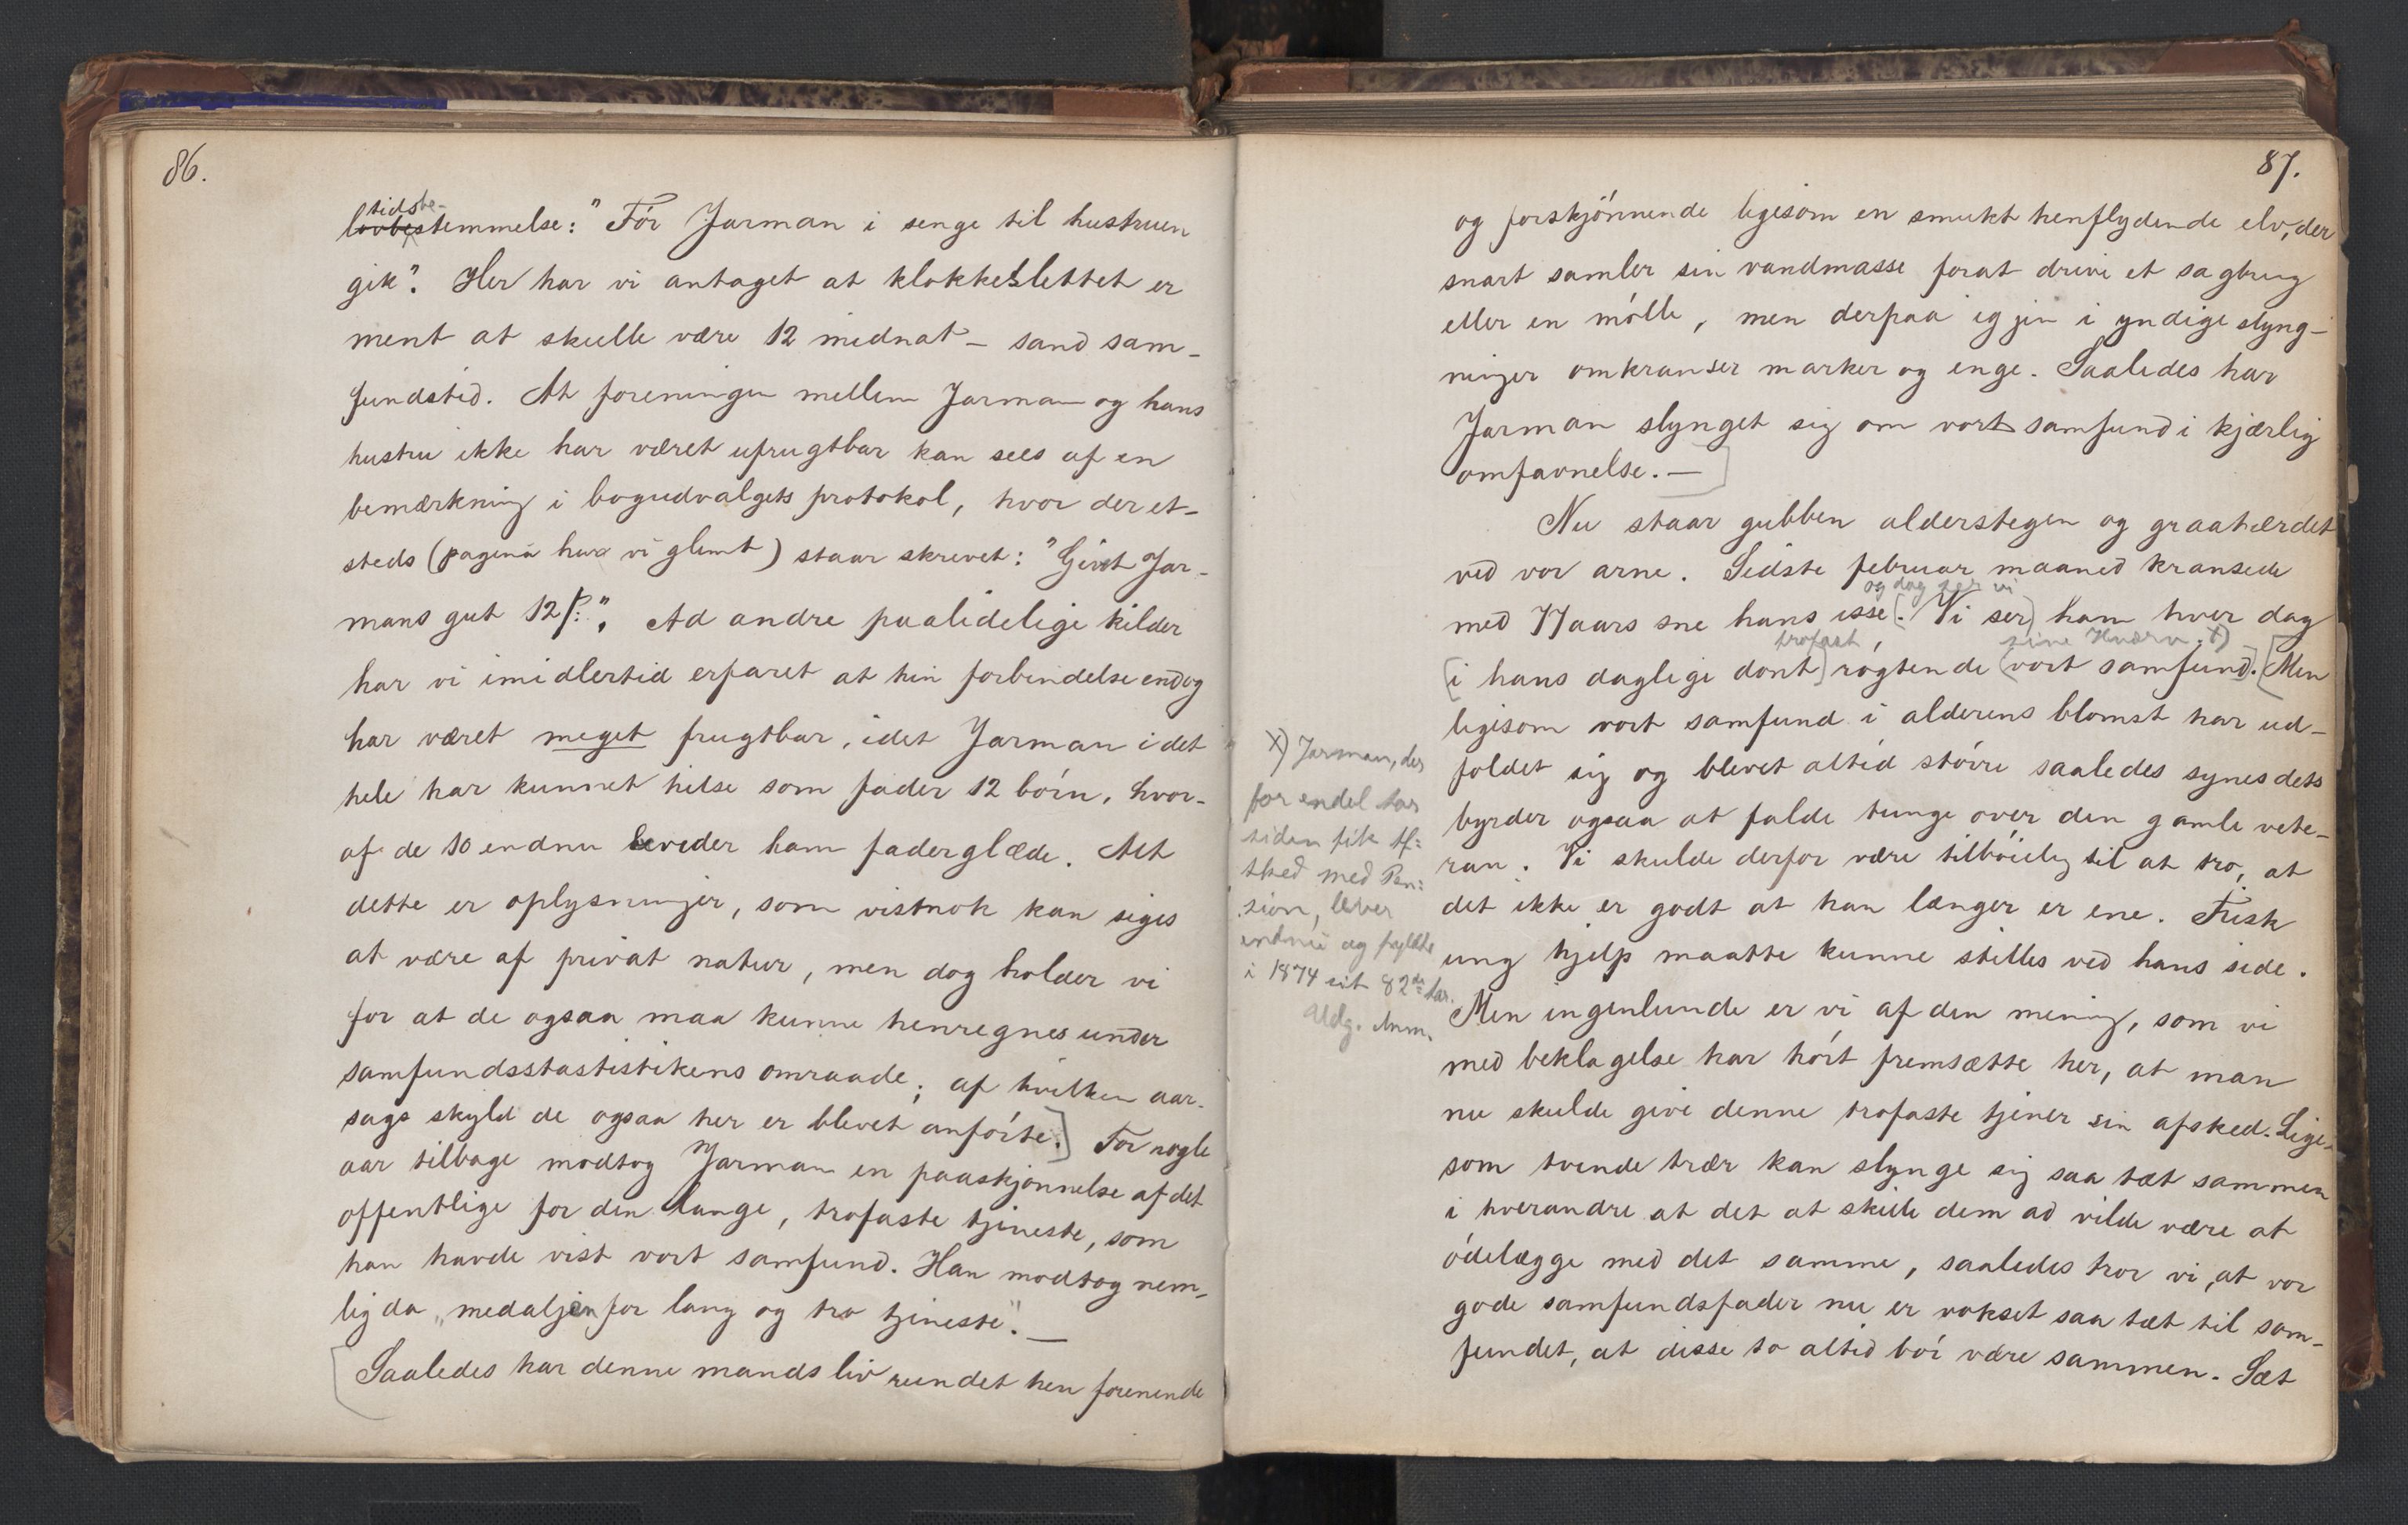 86.
tidsbe-
lovbestemmelse: "Før Jarman i senge til hustruen
gik". Her har vi antaget at klokkeslettet er
ment at skulle være 12 midnat – sand sam-
fundstid. At foreningen mellem Jarman og hans
hustru ikke har været ufrugtbar kan sees af en
bemærkning i bogudvalgets protokol, hvor der et-
steds (pagina har vi glemt) staar skrevet: "Givet Jar-
mans gut 12 ß:". Ad andre paalidelige kilder
har vi imidlertid erfaret at hin forbindelse endog
har været meget frugtbar, idet Jarman i det
hele har kunnet hilse som fader 12 børn, hvor-
af de 10 endnu bereder ham faderglæde. Alt
dette er oplysninger, som vistnok kan siges
at være af privat natur, men dog holder vi
for at de ogsaa maa kunne henregnes under
samfundsstastistikens omraade; af hvilken aar-
sags skyld de ogsaa her er blevet anførte.] For nogle
aar tilbage modtog Jarman en paaskjønnelse af det
offentlige for den lange, trofaste tjeneste, som
han havde vist vort samfund. Han modtog nem-
lig da "medaljen for lang og tro tjeneste". —
[Saaledes har denne mands liv rundet hen forenende
87.
og forskjønnende ligesom en smukt henflydende elv, der
snart samler sin vandmasse forat drive et sagbrug
eller en mølle, men derpaa igjen i yndige slyng-
ninger omkranser marker og enge. Saaledes har
Jarman slynget sig om vort samfund i kjærlig
omfavnelse. —]
Nu staar gubben alderstegen og graahærdet
ved vor arne. Sidste februar maaned kransede
og dog ser vi
med 77 aars sne hans isse [. Vi ser] ham hver dag
trofast sine Hverv. x)
[i hans daglige dont] røgtende [vort samfund]. [Men
ligesom vort samfund i alderens blomst har ud-
foldet sig og blevet altid større saaledes synes dets
byrder ogsaa at falde tunge over den gamle vete-
ran. Vi skulde derfor være tilbøielig til at tro, at
det ikke er godt at han længer er ene. Frisk
ung hjelp maatte kunne stilles ved hans side.
Men ingenlunde er vi af den mening, som vi
med beklagelse har hørt fremsætte her, at man
nu skulde give denne trofaste tjener sin afsked. Lige-
som tvende trær kan slynge sig saa tæt sammen
i hverandre at det at skille dem ad vilde være at
ødelægge med det samme, saaledes tror vi, at vor
gode samfundsfader nu er vokset saa tæt til sam-
fundet, at disse to altid bør være sammen. Sæt
x) Jarman, der
for endel Aar
siden fik Af-
sked med Pen-
sion, lever
endnu og fyldte
i 1874 sit 82de Aar.
Udg. Anm.